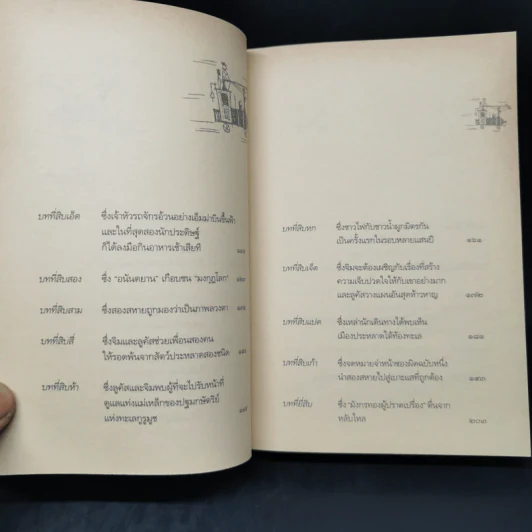 บทที่สิบเอ็ด ซึ่งเจ้าหัวรถจักรอ้วนอย่างเอ็มม่าบินขึ้นฟ้า
และในที่สุดสองนักประดิษฐ์
ก็ได้ลงมือกินอาหารเช้าเสียที
บทที่สิบสอง ซึ่ง "อนันตยาน" เกือบชน "มงกุฎโลก"
บทที่สิบสาม ซึ่งสองสหายถูกมองว่าเป็นภาพลวงตา
บทที่สิบสี่ ซึ่งจิมและลูคัสช่วยเพื่อนสองคน
ให้รอดพ้นจากสัตว์ประหลาดสองชนิด
บทที่สิบห้า ซึ่งลูคัสและจิมพบผู้ที่จะไปรับหน้าที่
ดูแลแท่งแม่เหล็กของปฐมกษัตริย์
แห่งทะเลกูรูมูช
บทที่สิบหก ซึ่งชาวไฟกับชาวน้ำผูกมิตรกัน
เป็นครั้งแรกในรอบหลายแสนปี ๑๖๑
บทที่สิบเจ็ด ซึ่งจิมจะต้องเผชิญกับเรื่องที่สร้าง
ความเจ็บปวดใจให้กับเขาอย่างมาก
และลูคัสวางแผนอันสุดห้าวหาญ ๑๗๒
บทที่สิบแปด ซึ่งเหล่านักเดินทางได้พบเห็น
เมืองประหลาดใต้ท้องทะเล ๑๘๑
บทที่สิบเก้า ซึ่งจดหมายจ่าหน้าซองผิดฉบับหนึ่ง
นำสองสหายไปสู่เบาะแสที่ถูกต้อง ๑๙๓
บทที่ยี่สิบ ซึ่ง "มังกรทองผู้ปราดเปรื่อง" ตื่นจาก
หลับใหล ๒๐๓